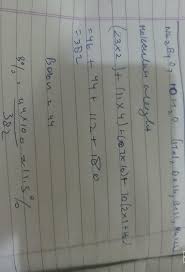 Na2B4O7 10H2O
molecular weight
(23x2)+(11x4)+(16x7)+10(2x1+16)
=46+44+112+180
=382
Boron = 44
B% = 44x100 = 11.5%
382